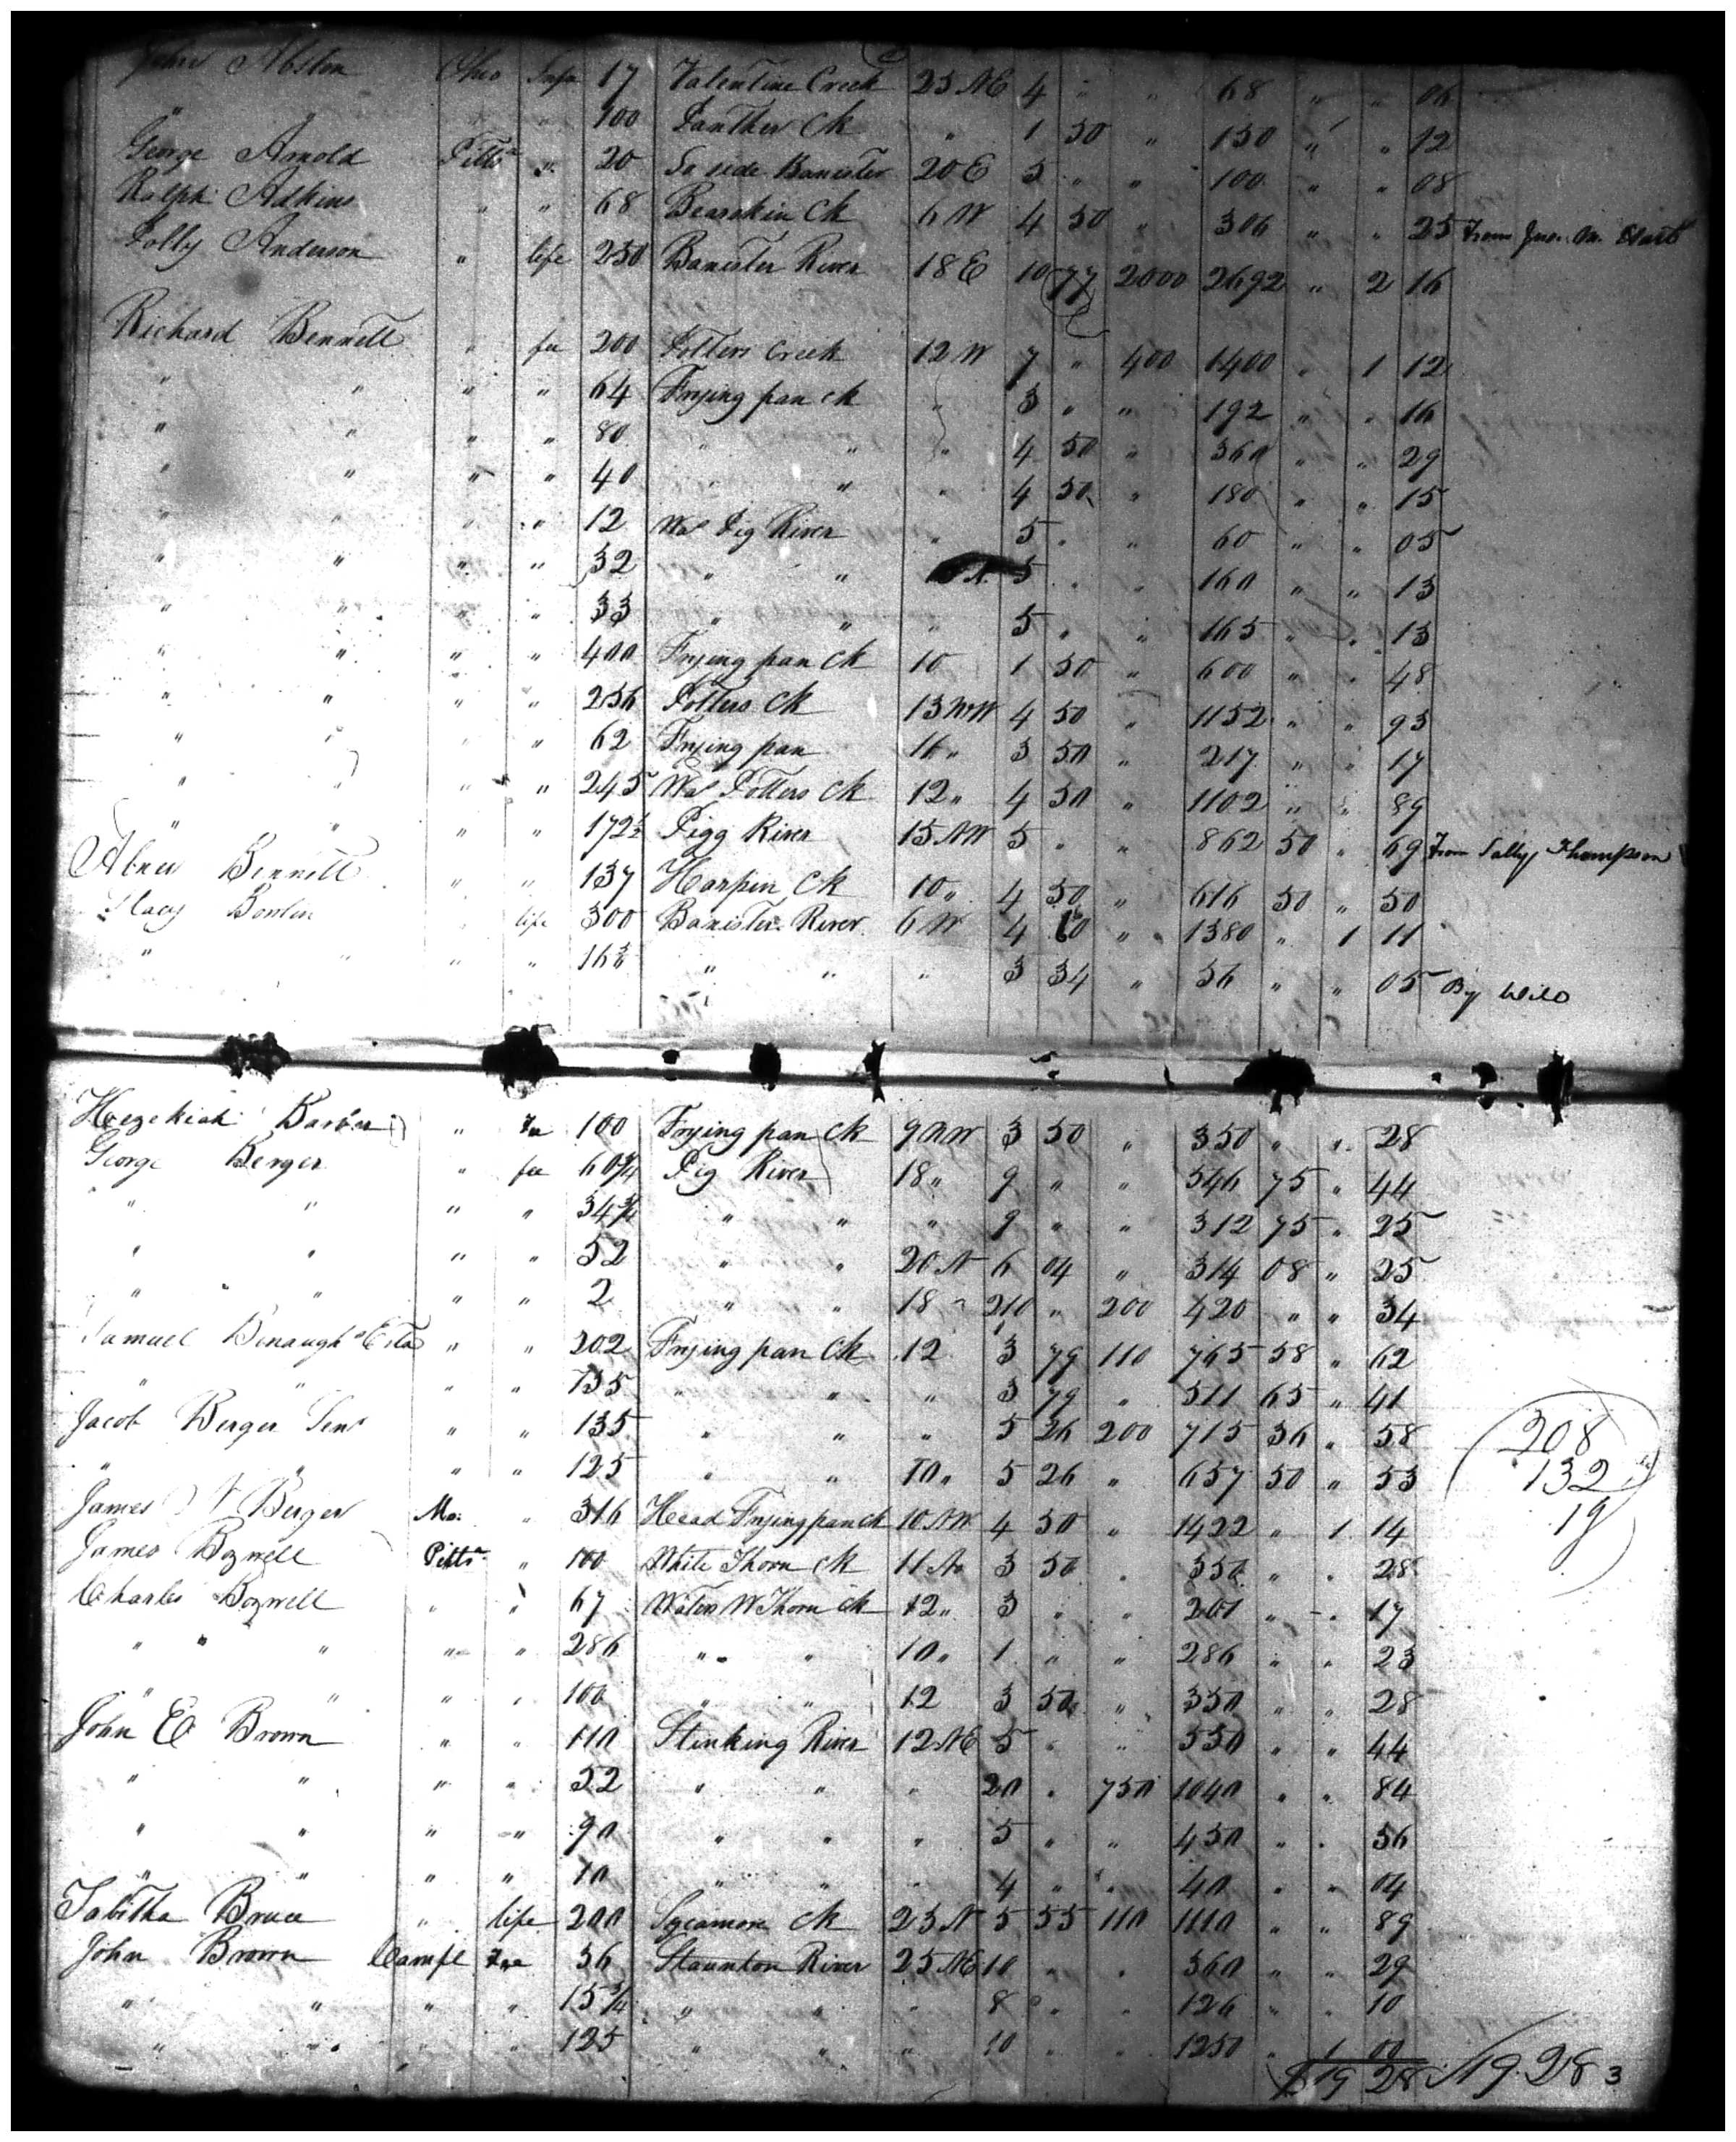 John Absten Ohio 17 Valentine Creek 25 NE 4 " " 68 " " 06
" " 100 Panther Ck " 1 50 " 150 " " 12
George Arnold Pitts " 20 So side Banister 20 E 5 " " 100 " " 08
Ralph Adkins " " 68 Bearskin Ck 6 W 4 50 " 306 " " 25 From
Polly Anderson " life 250 Banister River 18 E 10 77 2000 2692 " 2 16
Richard Bennett " fee 200 Potters Creek 12 W 7 " 400 1400 " 1 12
" " " " 64 Frying pan ck " 3 " " 192 " " 16
" " " " 80 " " " 4 50 " 360 " " 29
" " " " 40 " " " 4 50 " 180 " " 15
" " " " 12 Wa Pig River " 5 " " 60 " " 05
" " " " 32 " " 5 " " 160 " " 13
" " " " 33 " " " 5 " " 165 " " 13
" " " " 400 Frying pan Ck 10 1 50 " 600 " " 48
" " " " 256 Potters Ck 13 NW 4 50 " 1152 " " 93
" " " " 62 Frying pan 16 " 3 50 " 217 " " 17
" " " " 245 Wa Potters Ck 12 " 4 50 " 1102 " " 89
" " " " 172½ Pigg River 15 NW 5 " " 862 50 " 69 From Sally Thompson
Abner Bennett " " 137 Harpin Ck 10 " 4 50 " 616 50 " 50
Bowlin " life 300 Banister River 6 W 4 60 " 1380 " 1 11
" " " " 16 " " " 3 34 " 56 " " 05 By Will
Hezekiah Barber " Fee 100 Frying pan Ck 9 NW 3 50 " 350 " " 28
George Berger " fee 60¾ Pig River 18 " 9 " " 546 75 " 44
" " " " 34¾ " " " 9 " " 312 75 " 25
" " " " 52 " " 20 N 6 04 " 314 08 " 25
" " " " 2 " " 18 " 210 " 200 420 " " 34
Samuel Benaugh Esta " " 202 Frying pan Ck 12 3 79 110 765 58 " 62
" " " " 135 " " " 3 79 " 511 65 " 41
Jacob Berger Senr " " 135 " " " 5 26 200 715 36 " 58
208
" " " " 125 " " 10 " 5 26 " 657 50 " 53
132
James Berger Mo. " 316 Head Frying pan ck 10 NW 4 50 " 1422 " 1 14
19
James Bozwell Pitts " 100 White Thorn Ck 11 No 3 50 " 350 " " 28
Charles Bozwell " " 67 Waters W Thorn Ck 12 " 3 " " 201 " " 17
" " " " 286 " " 10 " 1 " " 286 " " 23
" " " " 100 " " 12 3 50 " 350 " " 28
John E Brown " " 110 Stinking River 12 NE 5 " " 550 " " 44
" " " " 52 " " " 20 " 750 1040 " " 84
" " " " 90 " " " 5 " " 450 " " 36
" " " " 10 " " " 4 " " 40 " " 04
Tabitha Bruce " life 200 Sycamore Ck 23 N 5 55 110 1110 " " 89
John Brown Campl Fee 36 Staunton River 25 NE 10 " " 360 " " 29
" " " " 15¾ " " " 8 " " 126 " " 10
" " " " 125 " " " 10 " " 1250 " 1 00
$19 28 19.28 3